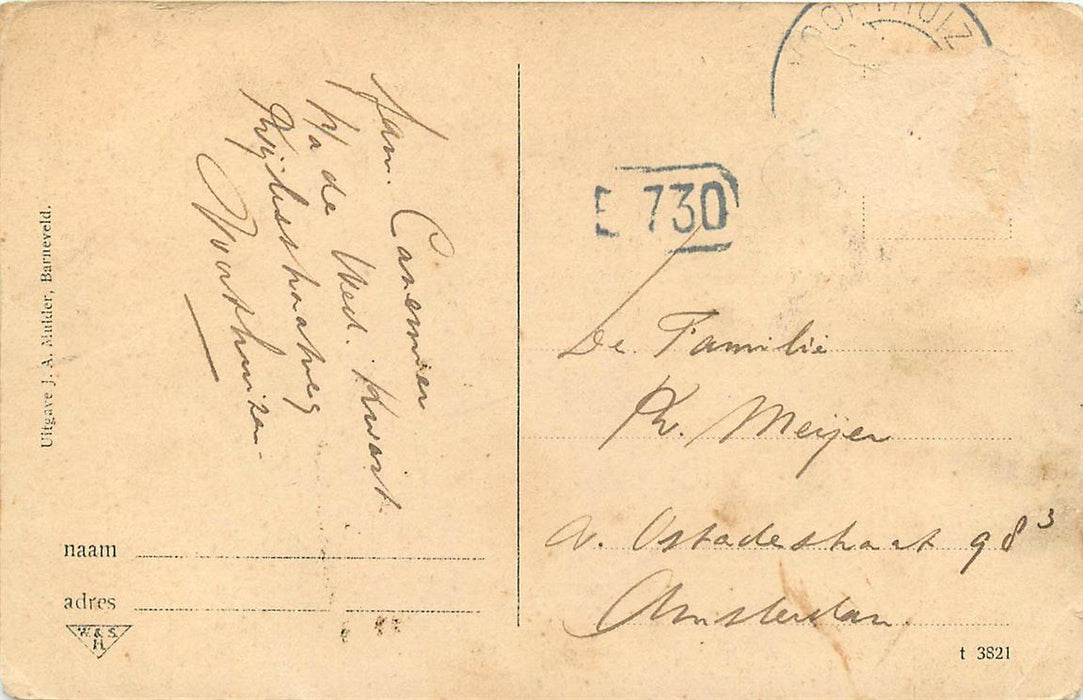 Fam. Canemier
p/a de Wed. Kwast
Rijksstraatweg
Voorthuizen
Uitgave J. A. Mulder, Barneveld.
naam
adres
W. & S.
H.
VOORTHUIZ
E 730
De Familie
Ph. Meijer
v. Ostadestraat 98³
Amsterdam.
t 3821